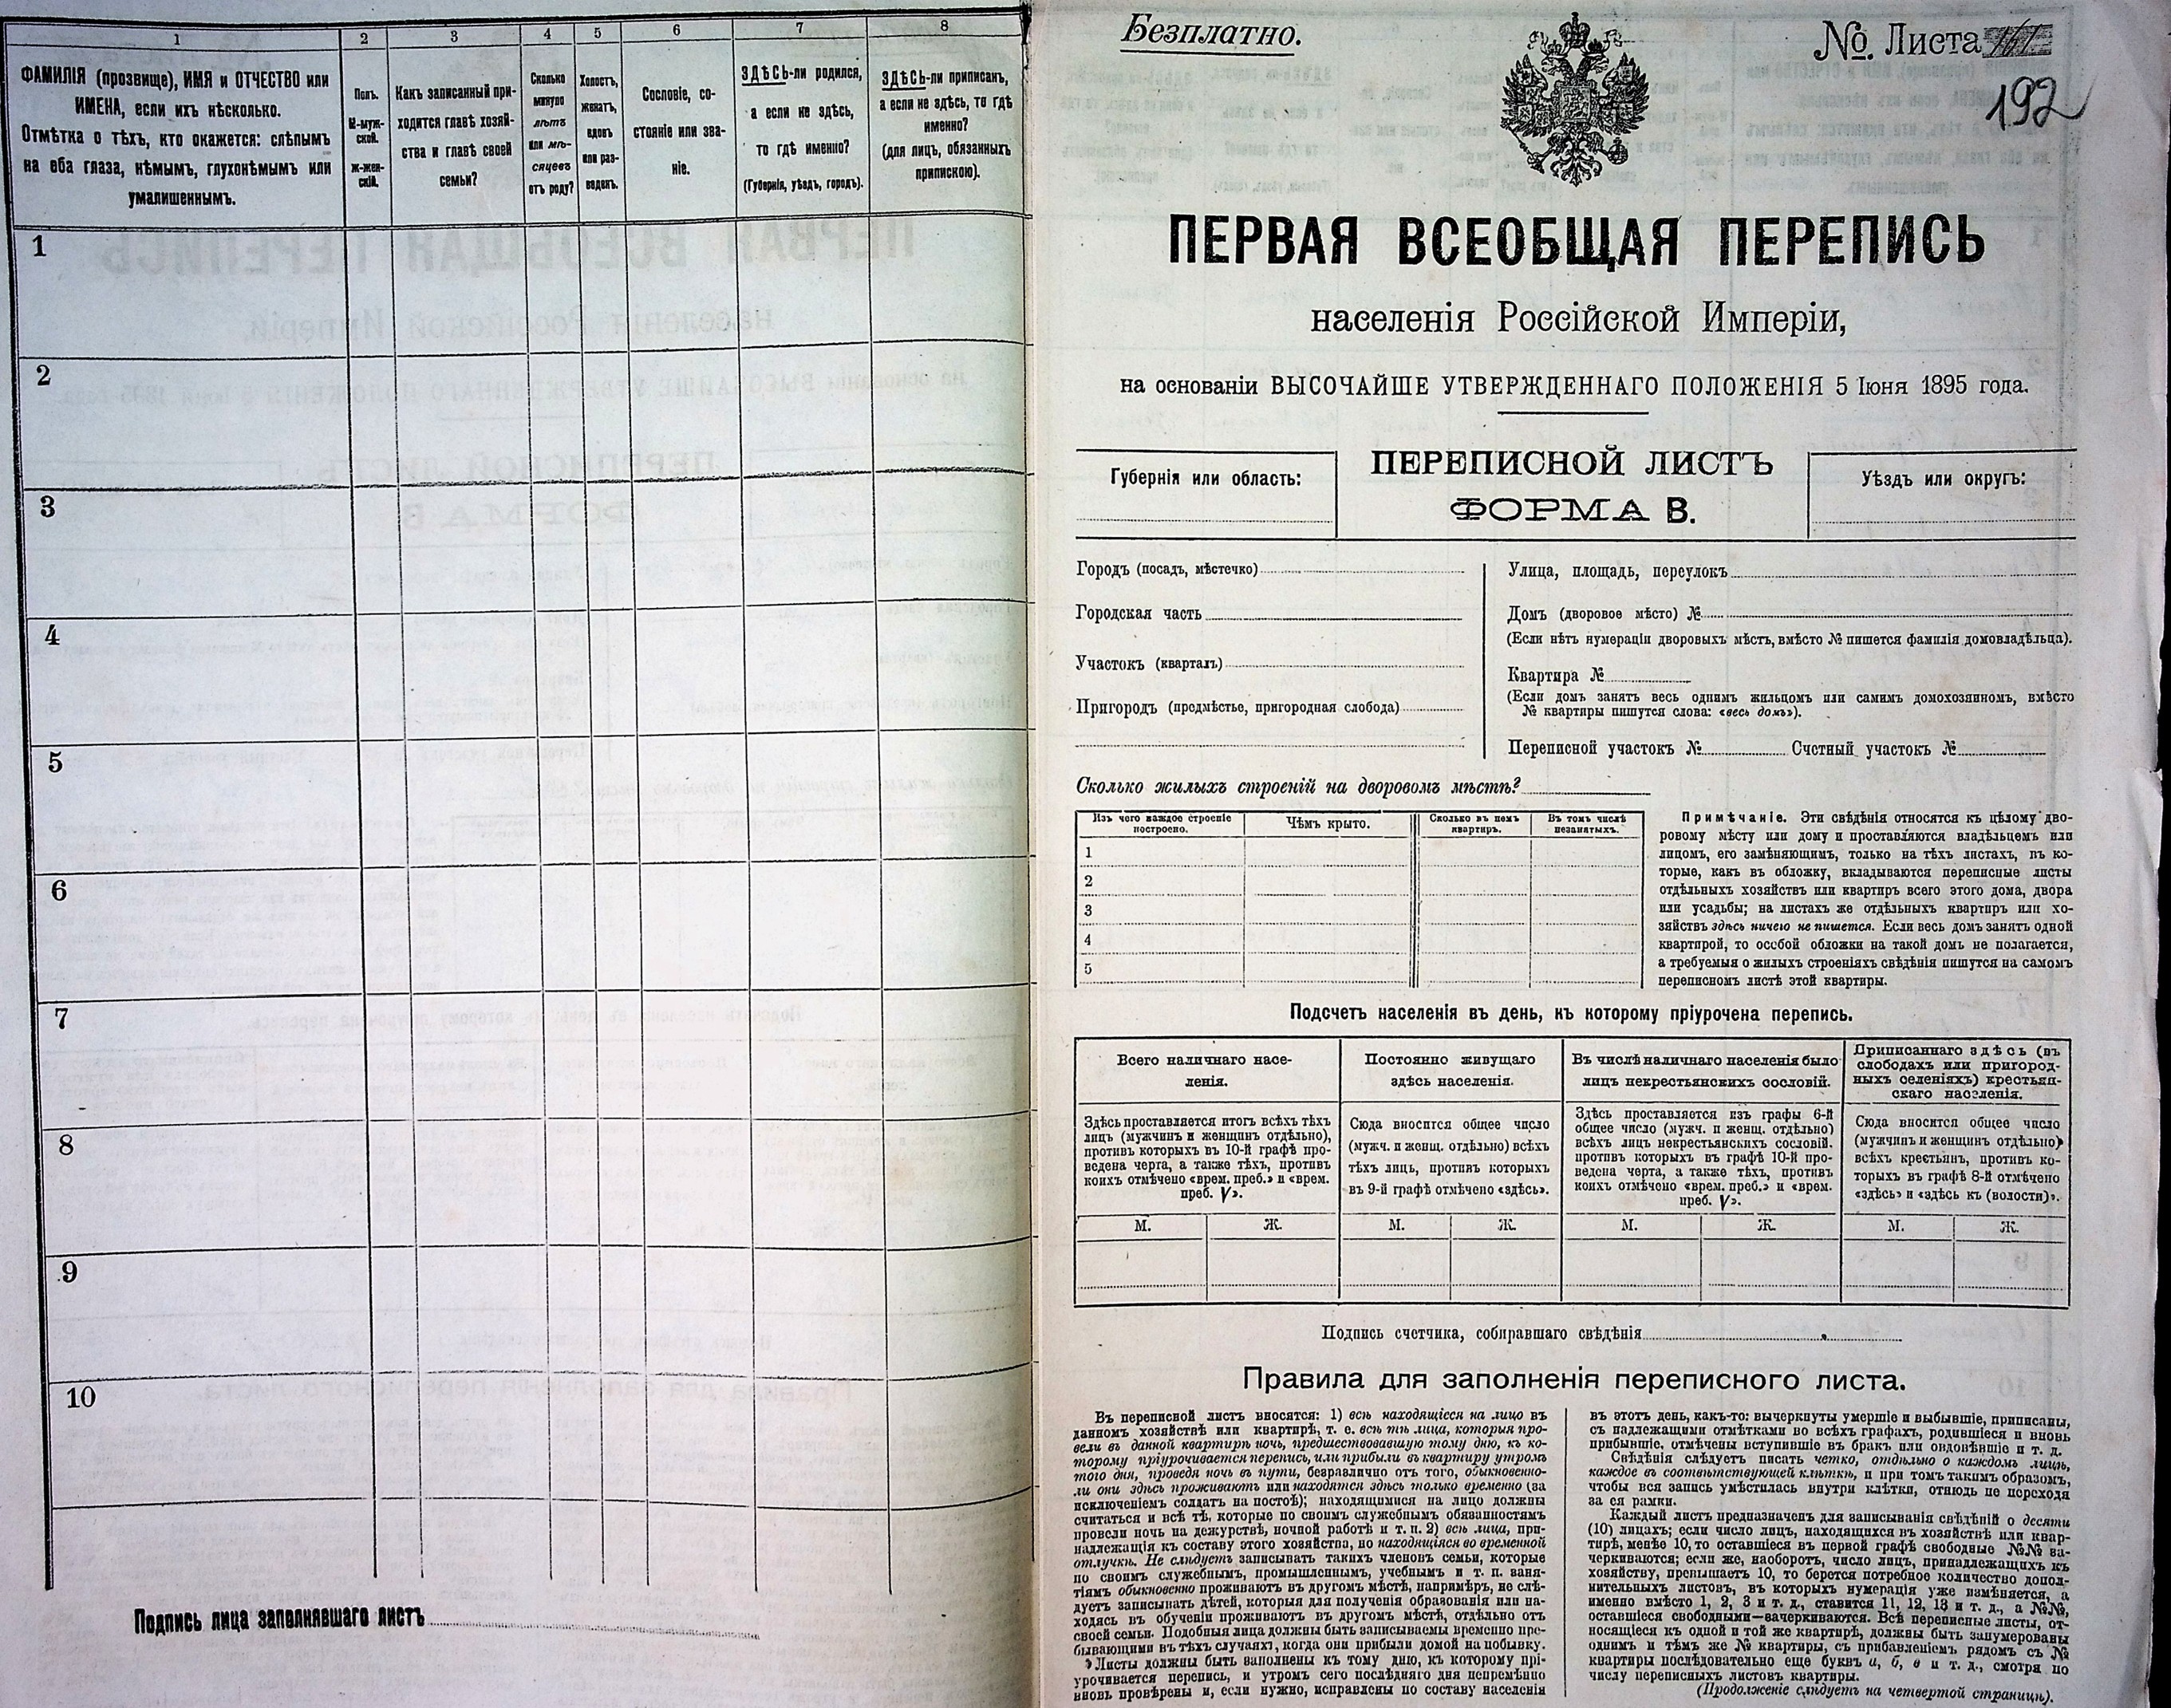 1
2
3
4
5
6
7
8
ФАМИЛІЯ (прозвище), ИМЯ и ОТЧЕСТВО или
ИМЕНА, если ихъ нѣсколько.
Отмѣтка о тѣхъ, кто окажется: слѣпымъ
на оба глаза, нѣмымъ, глухонѣмымъ или
умалишеннымъ.
Полъ.
М-муж-
ской.
Ж-жен-
скій.
Какъ записанный при-
ходится главѣ хозяй-
ства и главѣ своей
семьи?
Сколько
минуло
лѣтъ
или мѣ-
сяцевъ
отъ роду?
Холостъ,
женатъ,
вдовъ
или раз-
веденъ.
Сословіе, со-
стояніе или зва-
ніе.
ЗДѢСЬ-ли родился,
а если не здѣсь,
то гдѣ именно?
(Губернія, уѣздъ, городъ).
ЗДѢСЬ-ли приписанъ,
а если не здѣсь, то гдѣ
именно?
(для лицъ, обязанныхъ
припискою).
1
2
3
4
5
6
7
8
9
10
Подпись лица заполнявшаго листъ
Безплатно.
№ Листа
192
ПЕРВАЯ ВСЕОБЩАЯ ПЕРЕПИСЬ
населенія Россійской Имперіи,
на основаніи ВЫСОЧАЙШЕ УТВЕРЖДЕННАГО ПОЛОЖЕНІЯ 5 Іюня 1895 года.
Губернія или область:
ПЕРЕПИСНОЙ ЛИСТЪ
ФОРМА В.
Уѣздъ или округъ:
Городъ (посадъ, мѣстечко)
Городская часть
Участокъ (кварталъ)
Пригородъ (предмѣстье, пригородная слобода)
Улица, площадь, переулокъ
Домъ (дворовое мѣсто) №
(Если нѣтъ нумераціи дворовыхъ мѣстъ, вмѣсто № пишется фамилія домовладѣльца).
Квартира №
(Если домъ занятъ весь однимъ жильцомъ или самимъ домохозяиномъ, вмѣсто
№ квартиры пишутся слова: «весь домъ»).
Переписной участокъ № Счетный участокъ №
Сколько жилыхъ строеній на дворовомъ мѣстѣ?
Изъ чего каждое строеніе
построено.
Чѣмъ крыто.
Сколько въ немъ
квартиръ.
Въ томъ числѣ
незанятыхъ.
1
2
3
4
5
Примѣчаніе. Эти свѣдѣнія относятся къ цѣлому дво-
ровому мѣсту или дому и проставляются владѣльцемъ или
лицомъ, его замѣняющимъ, только на тѣхъ листахъ, въ ко-
торые, какъ въ обложку, вкладываются переписные листы
отдѣльныхъ хозяйствъ или квартиръ всего этого дома, двора
или усадьбы; на листахъ же отдѣльныхъ квартиръ или хо-
зяйствъ здѣсь ничего не пишется. Если весь домъ занятъ одной
квартирой, то особой обложки на такой домъ не полагается,
а требуемыя о жилыхъ строеніяхъ свѣдѣнія пишутся на самомъ
переписномъ листѣ этой квартиры.
Подсчетъ населенія въ день, къ которому пріурочена перепись.
Всего наличнаго насе-
ленія.
Постоянно живущаго
здѣсь населенія.
Въ числѣ наличнаго населенія было
лицъ некрестьянскихъ сословій.
Приписаннаго здѣсь (въ
слободахъ или пригород-
ныхъ селеніяхъ) крестьян-
скаго населенія.
Здѣсь проставляется итогъ всѣхъ тѣхъ
лицъ (мужчинъ и женщинъ отдѣльно),
противъ которыхъ въ 10-й графѣ про-
ведена черта, а также тѣхъ, противъ
коихъ отмѣчено «врем. преб.» и «врем.
преб. V».
Сюда вносится общее число
(мужч. и женщ. отдѣльно) всѣхъ
тѣхъ лицъ, противъ которыхъ
въ 9-й графѣ отмѣчено «здѣсь».
Здѣсь проставляется изъ графы 6-й
общее число (мужч. и женщ. отдѣльно)
всѣхъ лицъ некрестьянскихъ сословій.
противъ которыхъ въ графѣ 10-й про-
ведена черта, а также тѣхъ, противъ
коихъ отмѣчено «врем. преб.» и «врем.
преб. V».
Сюда вносится общее число
(мужчинъ и женщинъ отдѣльно)
всѣхъ крестьянъ, противъ ко-
торыхъ въ графѣ 8-й отмѣчено
«здѣсь» и «здѣсь къ (волости)».
М. Ж. М. Ж. М. Ж. М. Ж.
Подпись счетчика, собиравшаго свѣдѣнія
Правила для заполненія переписного листа.
Въ переписной листъ вносятся: 1) всѣ находящіеся на лицо въ
данномъ хозяйствѣ или квартирѣ, т. е. всѣ тѣ лица, которыя про-
вели въ данной квартирѣ ночь, предшествовавшую тому дню, къ ко-
торому пріурочивается перепись, или прибыли въ квартиру утромъ
того дня, проведя ночь въ пути, безразлично отъ того, обыкновенно-
ли они здѣсь проживаютъ или находятся здѣсь только временно (за
исключеніемъ солдатъ на постоѣ); находящимися на лицо должны
считаться и всѣ тѣ, которые по своимъ служебнымъ обязанностямъ
провели ночь на дежурствѣ, ночной работѣ и т. п. 2) всѣ лица, при-
надлежащія къ составу этого хозяйства, но находящіяся во временной
отлучкѣ. Не слѣдуетъ записывать такихъ членовъ семьи, которые
по своимъ служебнымъ, промышленнымъ, учебнымъ и т. п. заня-
тіямъ обыкновенно проживаютъ въ другомъ мѣстѣ, напримѣръ, не слѣ-
дуетъ записывать дѣтей, которыя для полученія образованія или на-
ходясь въ обученіи проживаютъ въ другомъ мѣстѣ, отдѣльно отъ
своей семьи. Подобныя лица должны быть записываемы временно пре-
бывающими въ тѣхъ случаяхъ, когда они прибыли домой на побывку.
Листы должны быть заполнены къ тому дню, къ которому прі-
урочивается перепись, и утромъ сего послѣдняго дня непремѣнно
вновь провѣрены и, если нужно, исправлены по составу населенія
въ этотъ день, какъ-то: вычеркнуты умершіе и выбывшіе, приписаны,
съ надлежащими отмѣтками во всѣхъ графахъ, родившіеся и вновь
прибывшіе, отмѣчены вступившіе въ бракъ или овдовѣвшіе и т. д.
Свѣдѣнія слѣдуетъ писать четко, отдѣльно о каждомъ лицѣ,
каждое въ соотвѣтствующей клѣткѣ, и при томъ такимъ образомъ,
чтобы вся запись умѣстилась внутри клѣтки, отнюдь не переходя
за ея рамки.
Каждый листъ предназначенъ для записыванія свѣдѣній о десяти
(10) лицахъ; если число лицъ, находящихся въ хозяйствѣ или квар-
тирѣ, менѣе 10, то оставшіеся въ первой графѣ свободные №№ за-
черкиваются; если же, наоборотъ, число лицъ, принадлежащихъ къ
хозяйству, превышаетъ 10, то берется потребное количество допол-
нительныхъ листовъ, въ которыхъ нумерація уже измѣняется, а
именно вмѣсто 1, 2, 3 и т. д., ставится 11, 12, 13 и т. д., а №№,
оставшіеся свободными—зачеркиваются. Всѣ переписные листы, от-
носящіеся къ одной и той же квартирѣ, должны быть занумерованы
однимъ и тѣмъ же № квартиры, съ прибавленіемъ рядомъ съ №
квартиры послѣдовательно еще буквъ а, б, в и т. д., смотря по
числу переписныхъ листовъ квартиры.
(Продолженіе слѣдуетъ на четвертой страницѣ).